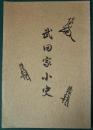 武田家小史